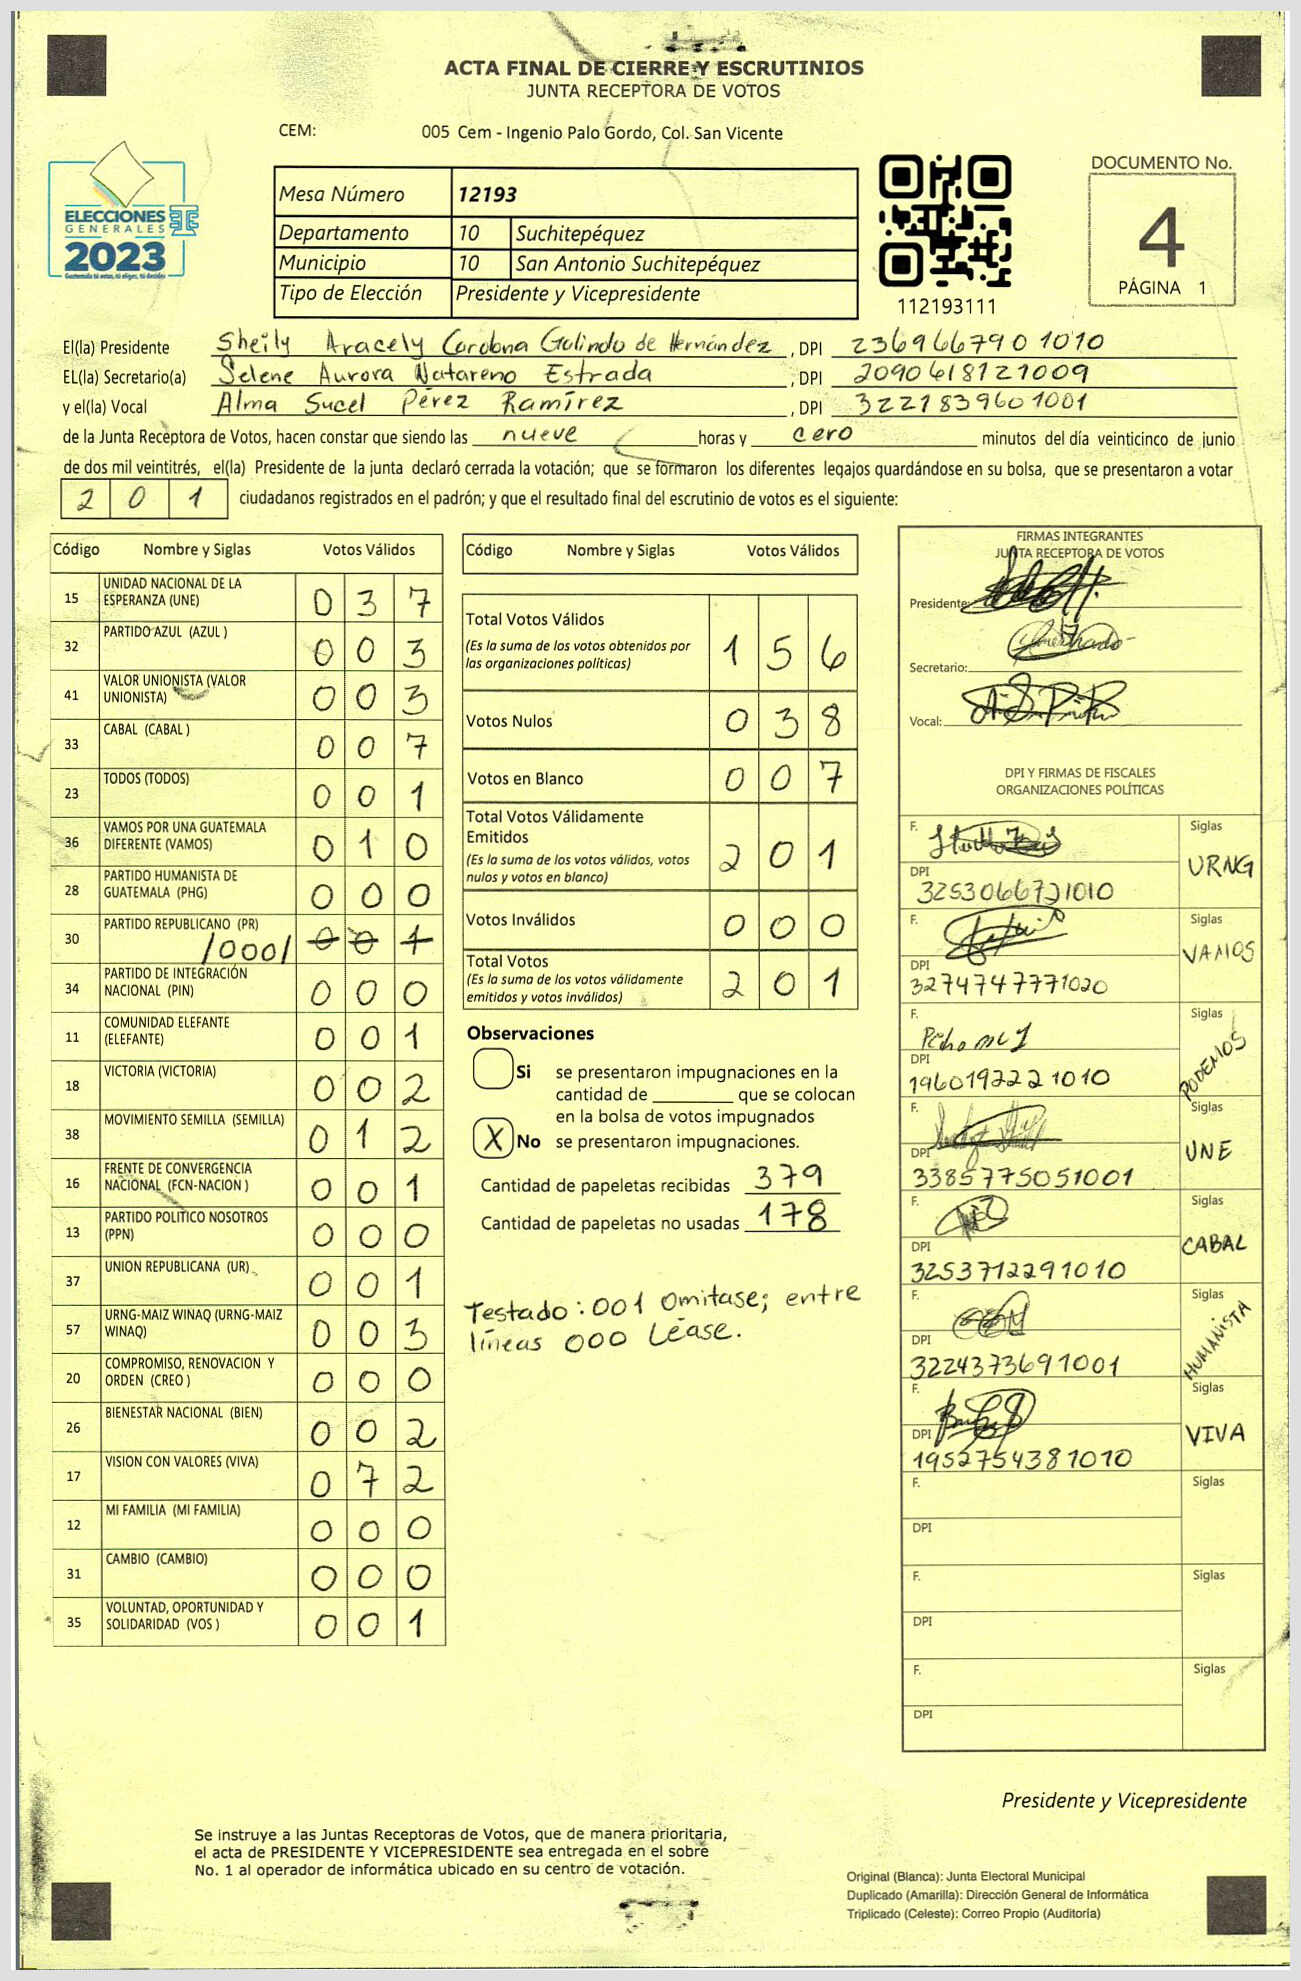 ACTA FINAL DE CIERRE Y ESCRUTINIOS
JUNTA RECEPTORA DE VOTOS
CEM: 005 Cem - Ingenio Palo Gordo, Col. San Vicente
ELECCIONES
GENERALES
2023
Guatemala tú votas, tú eliges, tú decides
Mesa Número 12193
Departamento 10 Suchitepéquez
Municipio 10 San Antonio Suchitepéquez
Tipo de Elección Presidente y Vicepresidente
112193111
DOCUMENTO No.
4
PÁGINA 1
El(la) Presidente Sheily Aracely Cardona Galindo de Hernández , DPI 2369667901010
EL(la) Secretario(a) Selene Aurora Natareno Estrada , DPI 2090618121009
y el(la) Vocal Alma Sucel Pérez Ramírez , DPI 3221839601001
de la Junta Receptora de Votos, hacen constar que siendo las nueve horas y cero minutos del día veinticinco de junio
de dos mil veintitrés, el(la) Presidente de la junta declaró cerrada la votación; que se formaron los diferentes legajos guardándose en su bolsa, que se presentaron a votar
201 ciudadanos registrados en el padrón; y que el resultado final del escrutinio de votos es el siguiente:
Código Nombre y Siglas Votos Válidos
15 UNIDAD NACIONAL DE LA ESPERANZA (UNE) 037
32 PARTIDO AZUL (AZUL ) 003
41 VALOR UNIONISTA (VALOR UNIONISTA) 003
33 CABAL (CABAL ) 007
23 TODOS (TODOS) 001
36 VAMOS POR UNA GUATEMALA DIFERENTE (VAMOS) 010
28 PARTIDO HUMANISTA DE GUATEMALA (PHG) 000
30 PARTIDO REPUBLICANO (PR) /000/ 001
34 PARTIDO DE INTEGRACIÓN NACIONAL (PIN) 000
11 COMUNIDAD ELEFANTE (ELEFANTE) 001
18 VICTORIA (VICTORIA) 002
38 MOVIMIENTO SEMILLA (SEMILLA) 012
16 FRENTE DE CONVERGENCIA NACIONAL (FCN-NACION ) 001
13 PARTIDO POLITICO NOSOTROS (PPN) 000
37 UNION REPUBLICANA (UR) 001
57 URNG-MAIZ WINAQ (URNG-MAIZ WINAQ) 003
20 COMPROMISO, RENOVACION Y ORDEN (CREO ) 000
26 BIENESTAR NACIONAL (BIEN) 002
17 VISION CON VALORES (VIVA) 072
12 MI FAMILIA (MI FAMILIA) 000
31 CAMBIO (CAMBIO) 000
35 VOLUNTAD, OPORTUNIDAD Y SOLIDARIDAD (VOS ) 001
Código Nombre y Siglas Votos Válidos
Total Votos Válidos 156
(Es la suma de los votos obtenidos por
las organizaciones políticas)
Votos Nulos 038
Votos en Blanco 007
Total Votos Válidamente
Emitidos 201
(Es la suma de los votos válidos, votos
nulos y votos en blanco)
Votos Inválidos 000
Total Votos 201
(Es la suma de los votos válidamente
emitidos y votos inválidos)
Observaciones
Si se presentaron impugnaciones en la
cantidad de ________ que se colocan
en la bolsa de votos impugnados
X No se presentaron impugnaciones.
Cantidad de papeletas recibidas 379
Cantidad de papeletas no usadas 178
Testado: 001 Omitase; entre
líneas 000 Léase.
FIRMAS INTEGRANTES
JUNTA RECEPTORA DE VOTOS
Presidente:
Secretario:
Vocal:
DPI Y FIRMAS DE FISCALES
ORGANIZACIONES POLÍTICAS
F. Siglas URNG
DPI 3253066721010
F. Siglas VAMOS
DPI 3274747771020
F. Siglas PODEMOS
DPI 1960192221010
F. Siglas UNE
DPI 3385775051001
F. Siglas CABAL
DPI 3253712291010
F. Siglas HUMANISTA
DPI 3224373691001
F. Siglas VIVA
DPI 1952754381010
F. Siglas
DPI
F. Siglas
DPI
F. Siglas
DPI
Presidente y Vicepresidente
Se instruye a las Juntas Receptoras de Votos, que de manera prioritaria,
el acta de PRESIDENTE Y VICEPRESIDENTE sea entregada en el sobre
No. 1 al operador de informática ubicado en su centro de votación.
Original (Blanca): Junta Electoral Municipal
Duplicado (Amarilla): Dirección General de Informática
Triplicado (Celeste): Correo Propio (Auditoría)